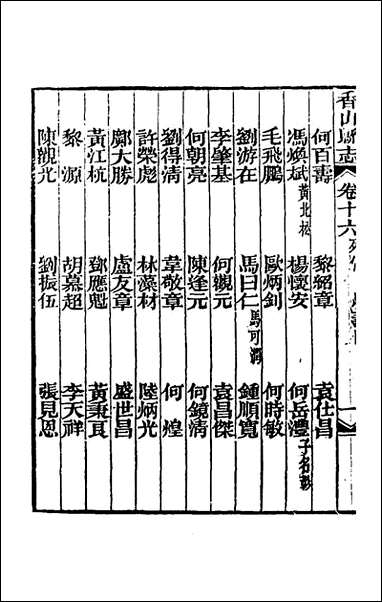 香山縣志 卷十六
何百壽 黎紹章 袁仕昌
馮煥斌 黃北松 楊懷安 何岳澧
毛飛鵬 歐炳釗 何時敏
劉游在 馬日仁 馬可 鍾順寬
李肇基 何觀元 袁昌傑
何朝亮 陳逢元 何鏡清
劉得清 韋敬章 何煌
許榮彪 林藻材 陸炳光
鄺大勝 盧友章 盛世昌
黃江杭 鄧應魁 黃秉良
黎源 胡慕超 李天祥
陳觀光 劉振伍 張見恩